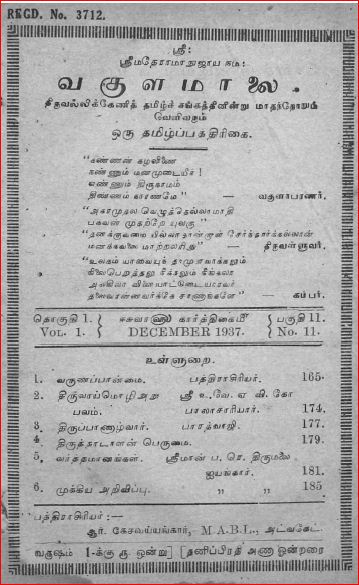 REGD. No. 3712.
ஸ்ரீ:
ஸ்ரீமதேராமாநுஜாய நம:
வகுளமாலை.
திருவல்லிக்கேணித் தமிழ்ச் சங்கத்தினின்று மாதந்தோறும்
வெளிவரும்
ஒரு தமிழ்ப்பத்திரிகை.
"கண்ணன் கழலிணை
நண்ணும் மனமுடையீர்!
எண்ணும் திருநாமம்
திண்ணம் நாரணமே" — வகுளாபரணர்.
"அகரமுதல வெழுத்தெல்லாமாதி
பகவன் முதற்றே யுலகு"
"தனக்குவமை யில்லாதான்தாள் சேர்ந்தார்க்கல்லால்
மனக்கவலை மாற்றலரிது" — திருவள்ளுவர்.
"உலகம் யாவையும் தாமுளவாக்கலும்
நிலைபெறுத்தலு நீக்கலும் நீங்கலா
அலகிலா விளையாட்டுடையாரவர்
தலைவரன்னவர்க்கே சரணாங்களே" — கம்பர்.
தொகுதி 1. ஈசுவரஹு கார்த்திகைமீ பகுதி 11.
VOL. 1. DECEMBER 1937. No. 11.
உள்ளுறை.
1. வருணப்பான்மை. பத்திராசிரியர். 165.
2. திருவாய்மொழிஅநு ஸ்ரீ உ.வே. ஏ வி. கோ
பவம். பாலாசாரியர். 174.
3. திருப்பாணாழ்வார். பாரத்வாஜி. 177.
4. திருநாடாளன் பெருமை. 179.
5. வர்த்தமானங்கள். ஸ்ரீமான் ப. ரெ. திருமலை
ஐயங்கார். 181.
6. முக்கிய அறிவிப்பு. " " 185
பத்திராசிரியர்:—
ஆர். கேசவய்யங்கார், M.A.B.L., அட்வகேட்.
வருஷம் 1-க்கு ரூ. ஒன்று] [தனிப்பிரதி அணா ஒன்றரை